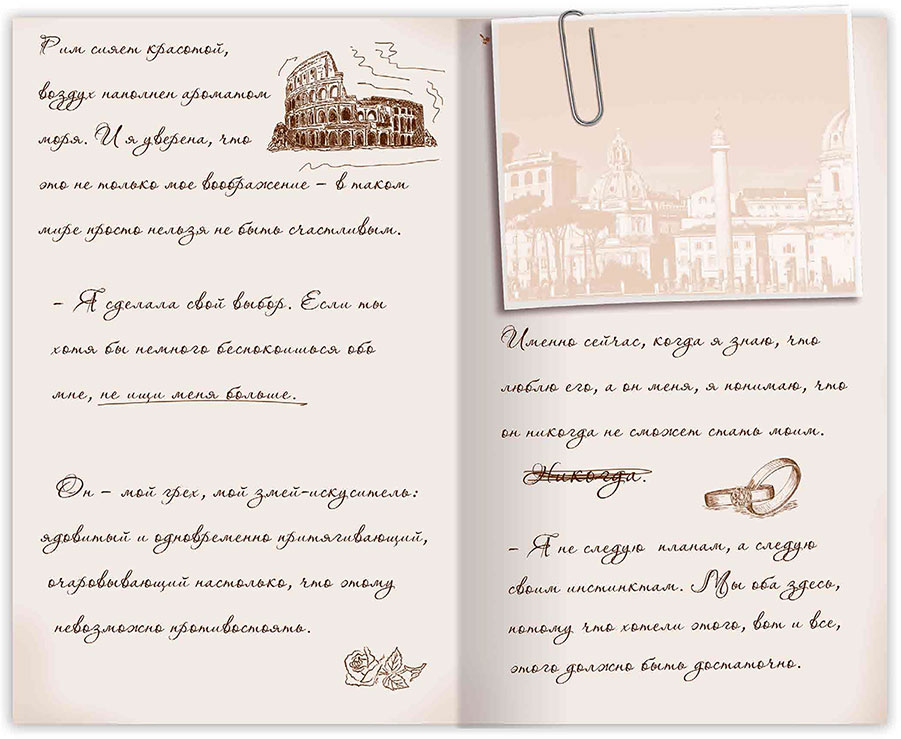 Рим сияет красотой,
воздух наполнен ароматом
моря. И я уверена, что
это не только мое воображение – в таком
мире просто нельзя не быть счастливым.
– Я сделала свой выбор. Если ты
хотя бы немного беспокоишься обо
мне, не ищи меня больше.
Он – мой грех, мой змей-искуситель:
ядовитый и одновременно притягивающий,
очаровывающий настолько, что этому
невозможно противостоять.
Именно сейчас, когда я знаю, что
люблю его, а он меня, я понимаю, что
он никогда не сможет стать моим.
Никогда.
– Я не следую планам, а следую
своим инстинктам. Мы оба здесь,
потому что хотели этого, вот и все,
этого должно быть достаточно.